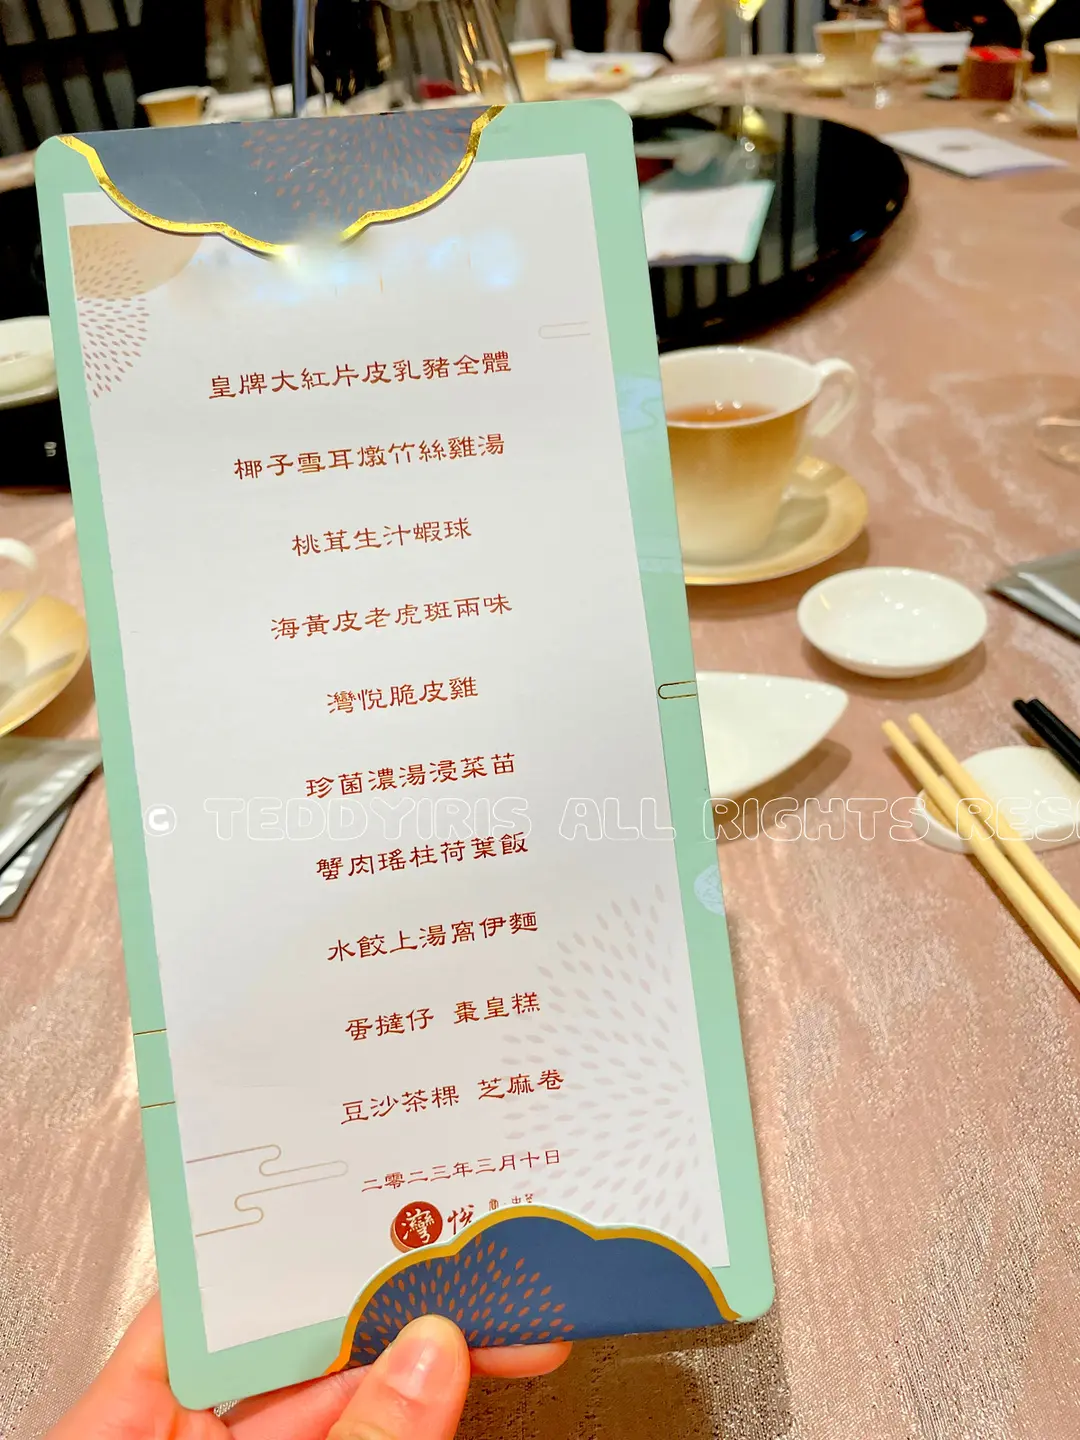 皇牌大紅片皮乳豬全體
椰子雪耳燉竹絲雞湯
桃茸生汁蝦球
海黃皮老虎斑兩味
灣悅脆皮雞
珍菌濃湯浸菜苗
蟹肉瑤柱荷葉飯
水餃上湯窩伊麵
蛋撻仔 棗皇糕
豆沙茶粿 芝麻卷
二零二三年三月十日
灣悅
© TEDDYIRIS ALL RIGHTS RES